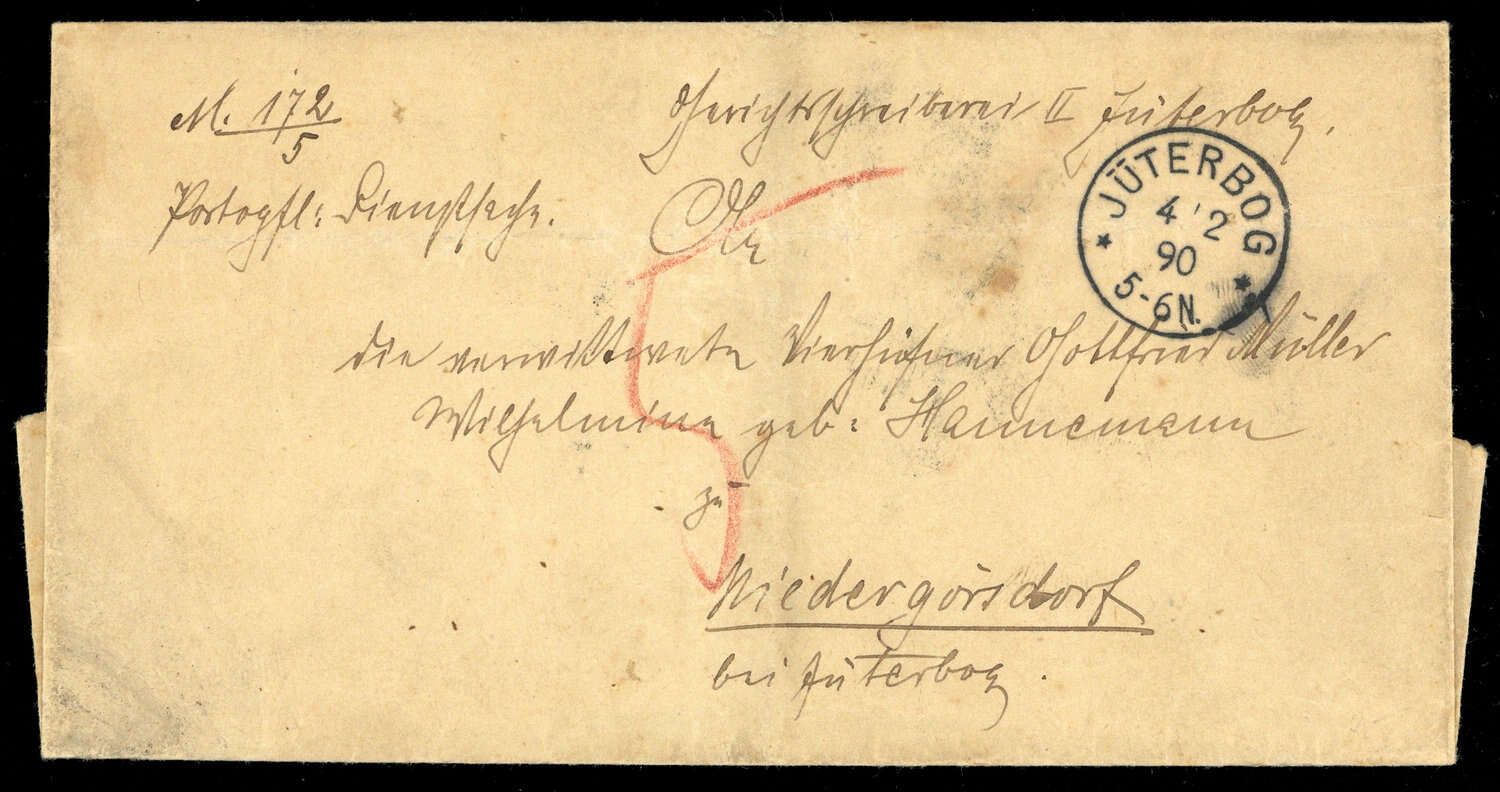 M. 172/5
Gerichtsschreiberei II Jüterbog.
Portopfl: Dienstsache.
An
JÜTERBOG
4 2
90
5-6N.
5
die verwittwete Vierhüfner Gottfried Müller
Wilhelmine geb: Hannemann
zu
Niedergörsdorf
bei Jüterbog.